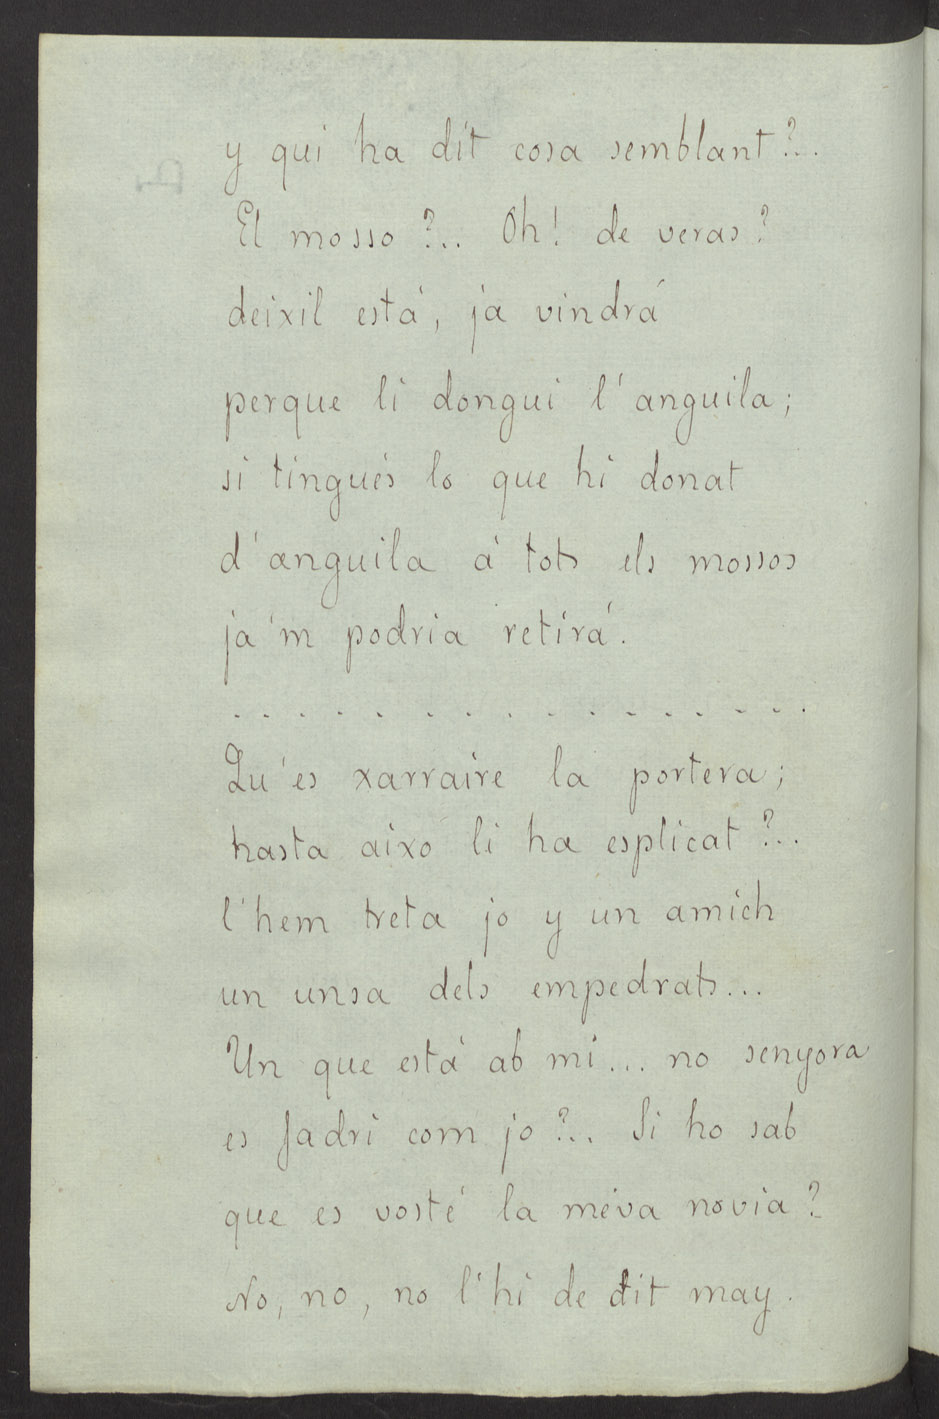 y qui ha dit cosa semblant?..
El mosso?.. Oh! de veras?
deixil está, ja vindrá
perque li dongui l'anguila;
si tingués lo que hi donat
d'anguila á tots els mossos
ja'm podria retirá.
. . . . . . . . . . . . . . . . .
Qu'es xarraire la portera;
hasta aixó li ha esplicat?..
l'hem treta jo y un amich
un unsa dels empedrats...
Un que está ab mi... no senyora
es fadri com jo?.. Si ho sab
que es vosté la méva novia?
No, no, no l'hi de dit may.